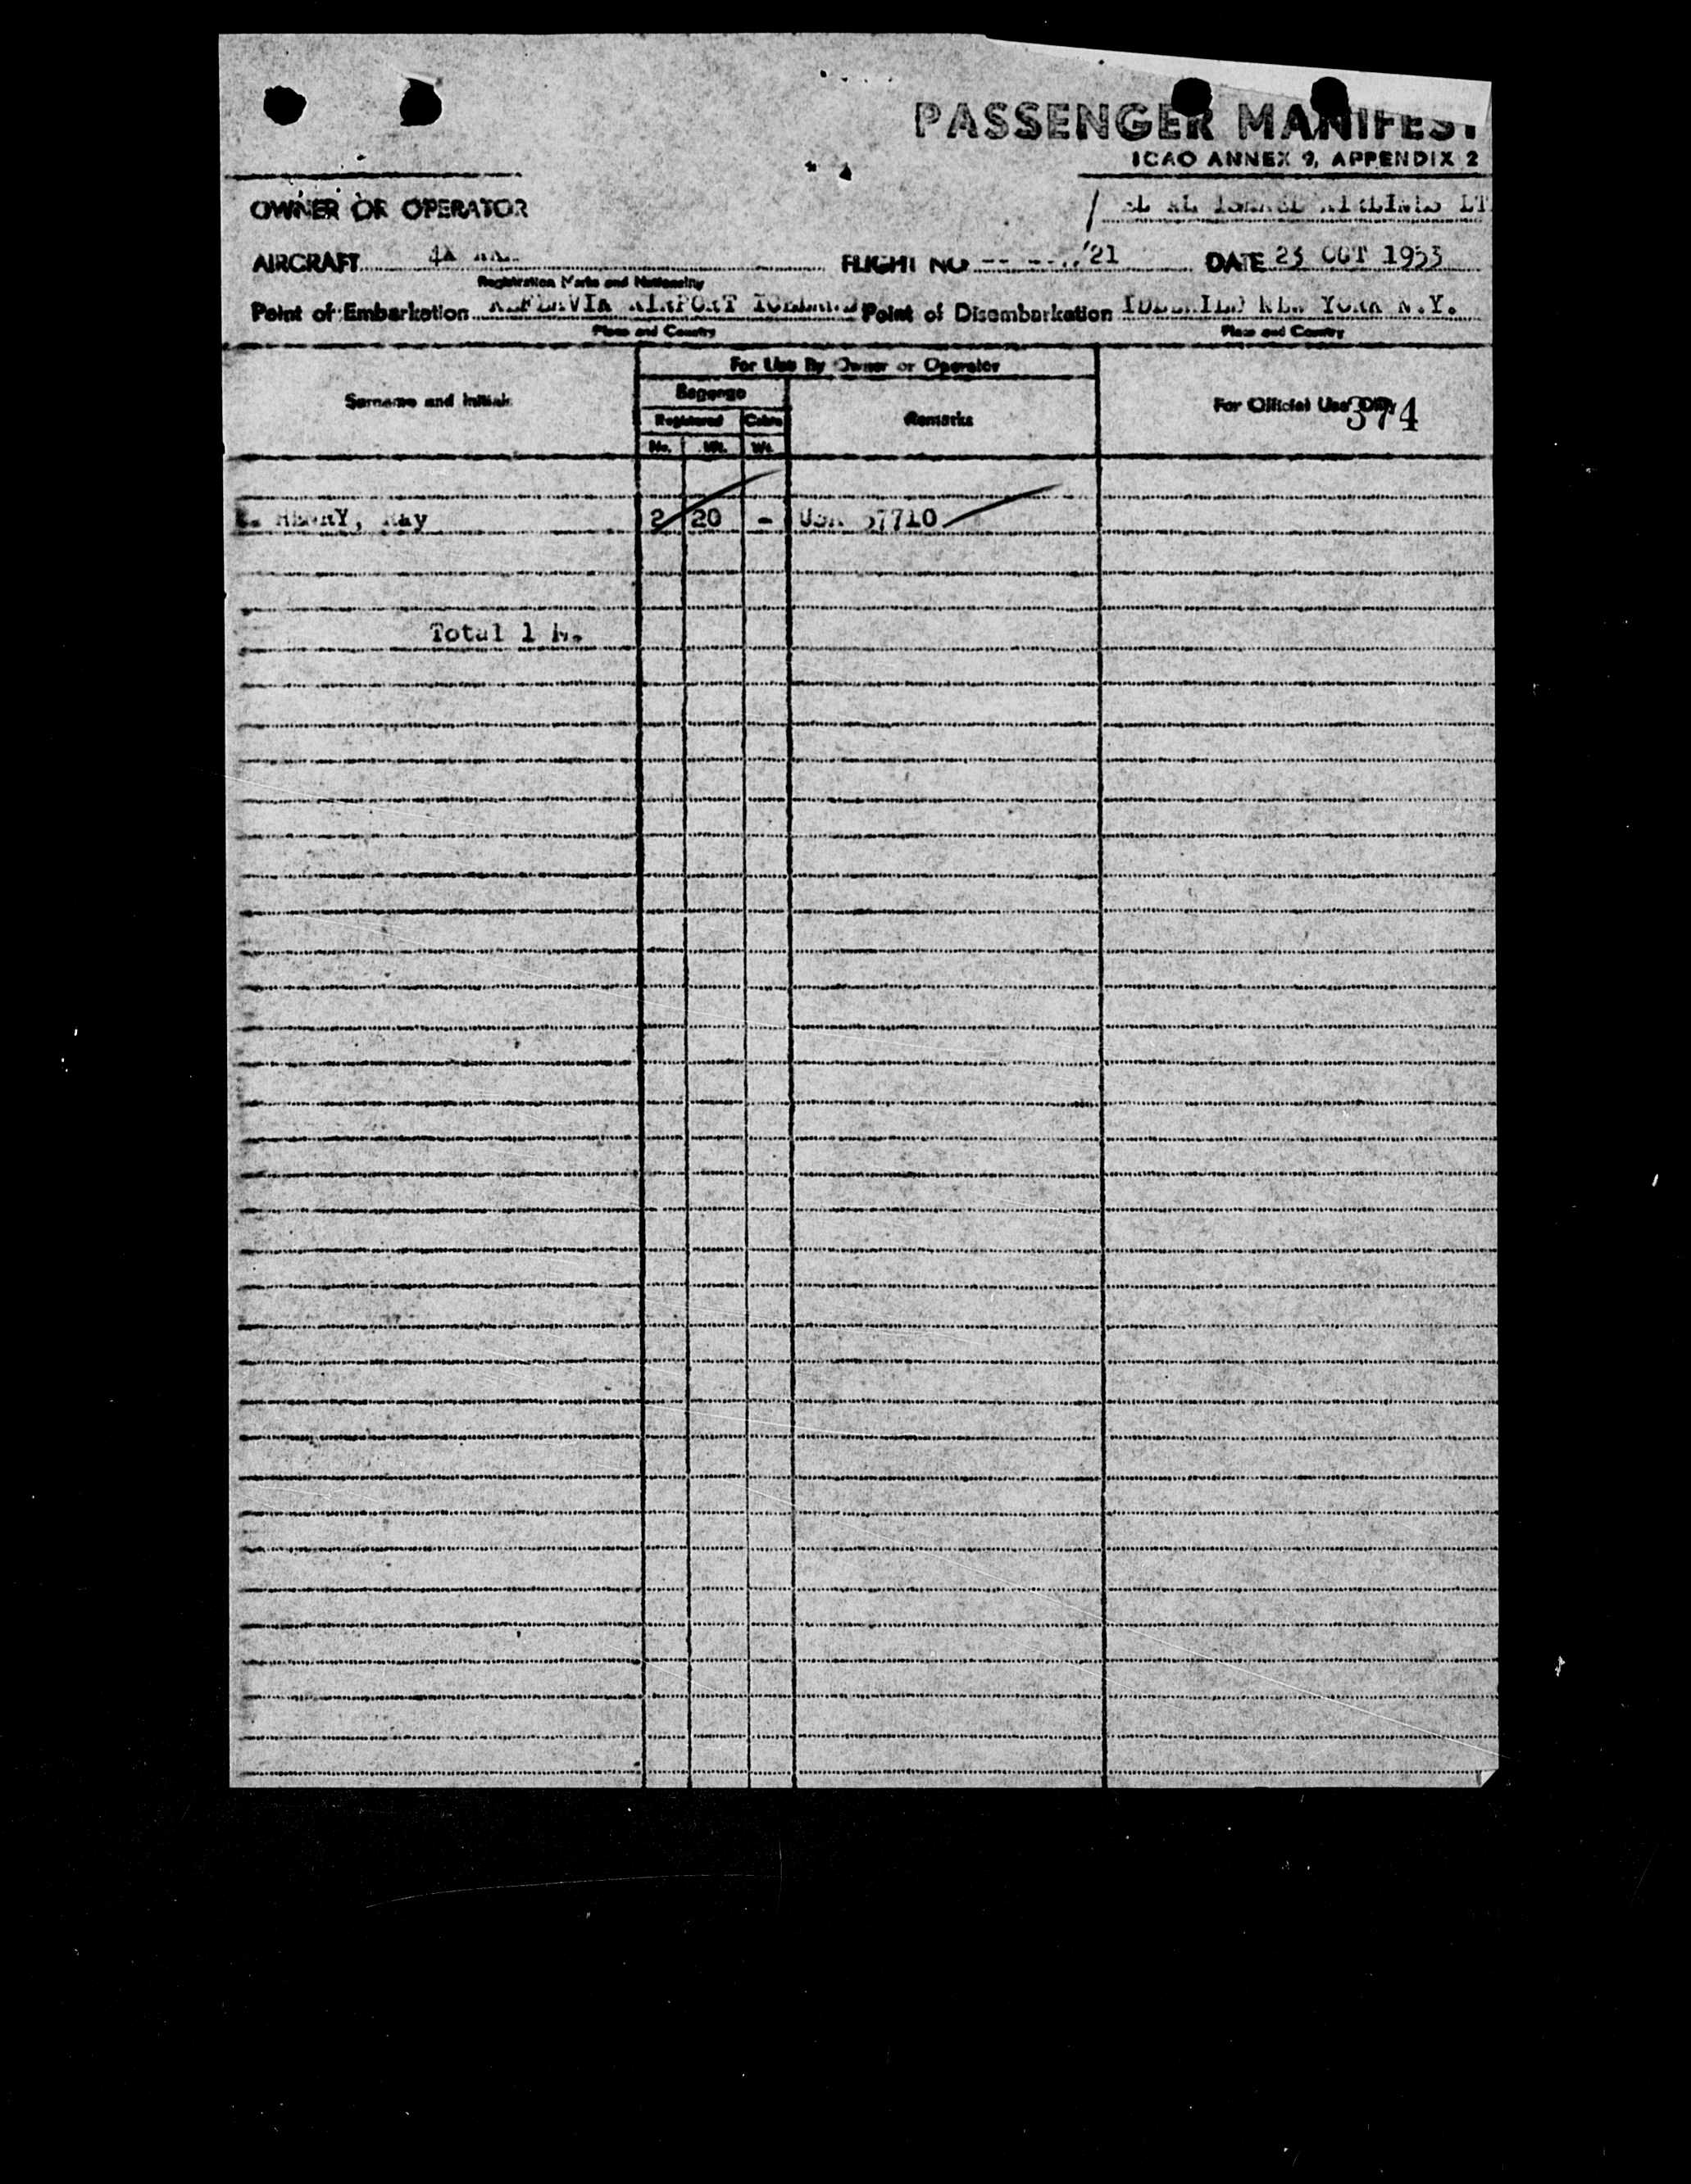 PASSENGER MANIFEST
ICAO ANNEX 9, APPENDIX 2
OWNER OR OPERATOR EL AL ISRAEL AIRLINES LT
AIRCRAFT 4X FLIGHT NO /21 DATE 23 OCT 1953
Registration Marks and Nationality
Point of Embarkation KEFLAVIK AIRPORT ICELAND Point of Disembarkation IDLEWILD NEW YORK N.Y.
Place and Country Place and Country
For Use By Owner or Operator
Surname and Initials Baggage Remarks For Official Use Only 374
Registered Cabin
No. Wt. Wt.
HENRY, Ray 2 20 - USA 57710
Total 1